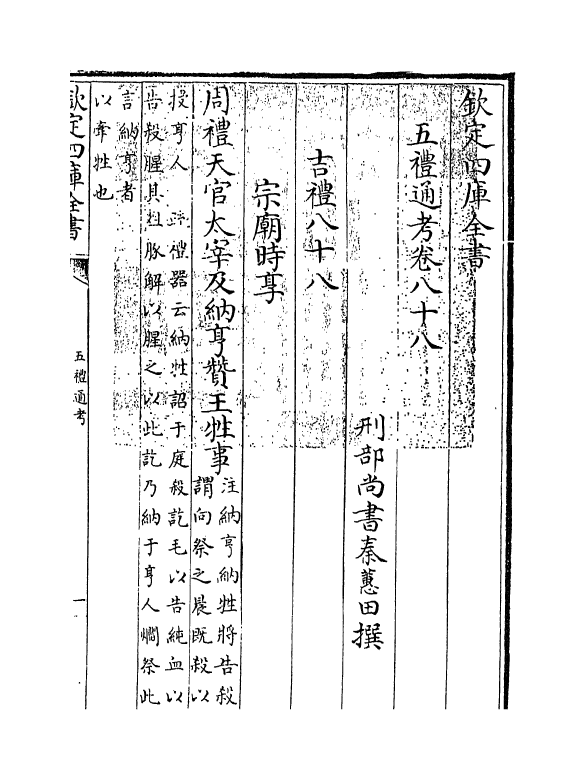 欽定四庫全書
五禮通考卷八十八
刑部尚書秦蕙田撰
吉禮八十八
宗廟時享
周禮天官太宰及納亨贊王牲事注納亨納牲將告殺
謂向祭之晨既殺以
授亨人 疏禮器云納牲詔于庭殺訖毛以告純血以
告殺腥其俎豚解以腥之以此訖乃納于亨人爓祭此
言納亨者
以牽牲也
欽定四庫全書
五禮通考
一